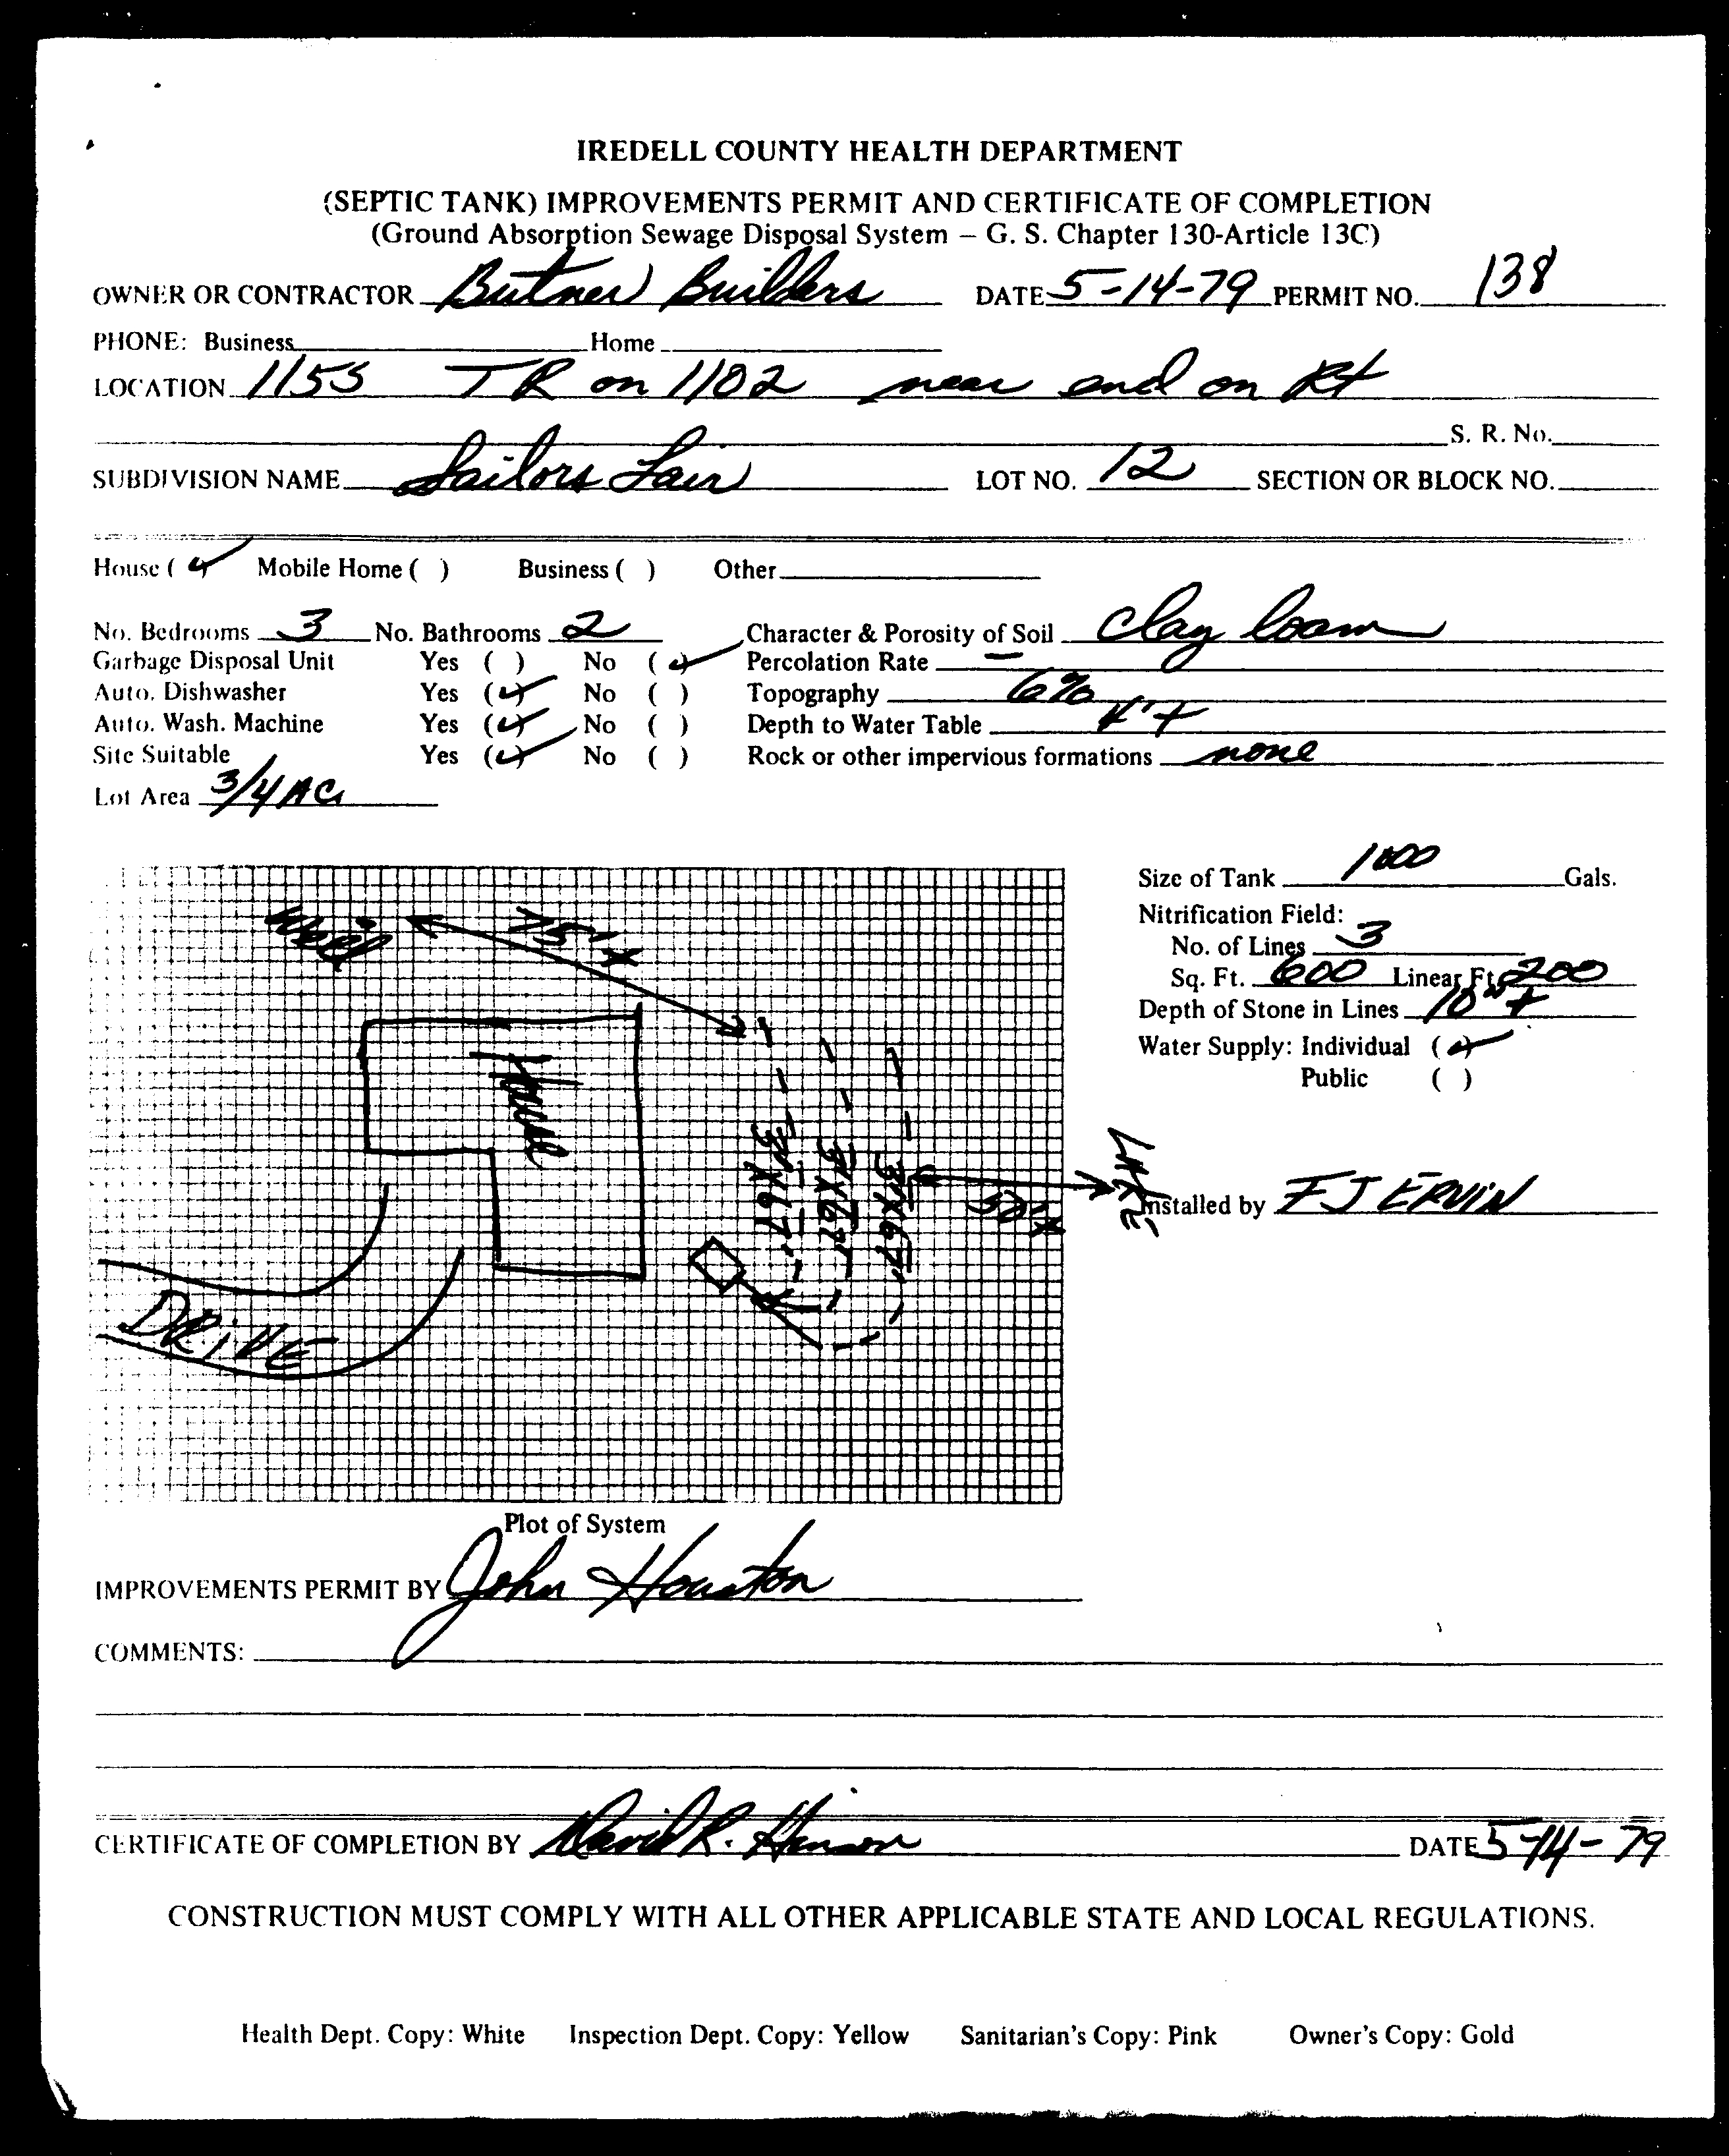 IREDELL COUNTY HEALTH DEPARTMENT
(SEPTIC TANK) IMPROVEMENTS PERMIT AND CERTIFICATE OF COMPLETION
(Ground Absorption Sewage Disposal System – G. S. Chapter 130-Article 13C)
OWNER OR CONTRACTOR Butner Builders DATE 5-14-79 PERMIT NO. 138
PHONE: Business Home
LOCATION 1155 TR on 1102 near end on Rt
S. R. No.
SUBDIVISION NAME Sailors Lair LOT NO. 12 SECTION OR BLOCK NO.
House ( ) Mobile Home ( ) Business ( ) Other
No. Bedrooms 3 No. Bathrooms 2 Character & Porosity of Soil Clay loam
Garbage Disposal Unit Yes ( ) No ( ) Percolation Rate –
Auto. Dishwasher Yes ( ) No ( ) Topography 6%
Auto. Wash. Machine Yes ( ) No ( ) Depth to Water Table 4'+
Site Suitable Yes ( ) No ( ) Rock or other impervious formations none
Lot Area 3/4 AC
Size of Tank 1000 Gals.
Nitrification Field:
No. of Lines 3
Sq. Ft. 600 Linear Ft. 200
Depth of Stone in Lines 10"+
Water Supply: Individual ( )
Public ( )
Installed by F J ERVIN
Well
75'+
House
3'X67'
3'X67'
3'X67'
50'+
Lake
DRIVE
Plot of System
IMPROVEMENTS PERMIT BY John Houston
COMMENTS:
CERTIFICATE OF COMPLETION BY David R. Hinson DATE 5-14-79
CONSTRUCTION MUST COMPLY WITH ALL OTHER APPLICABLE STATE AND LOCAL REGULATIONS.
Health Dept. Copy: White Inspection Dept. Copy: Yellow Sanitarian's Copy: Pink Owner's Copy: Gold